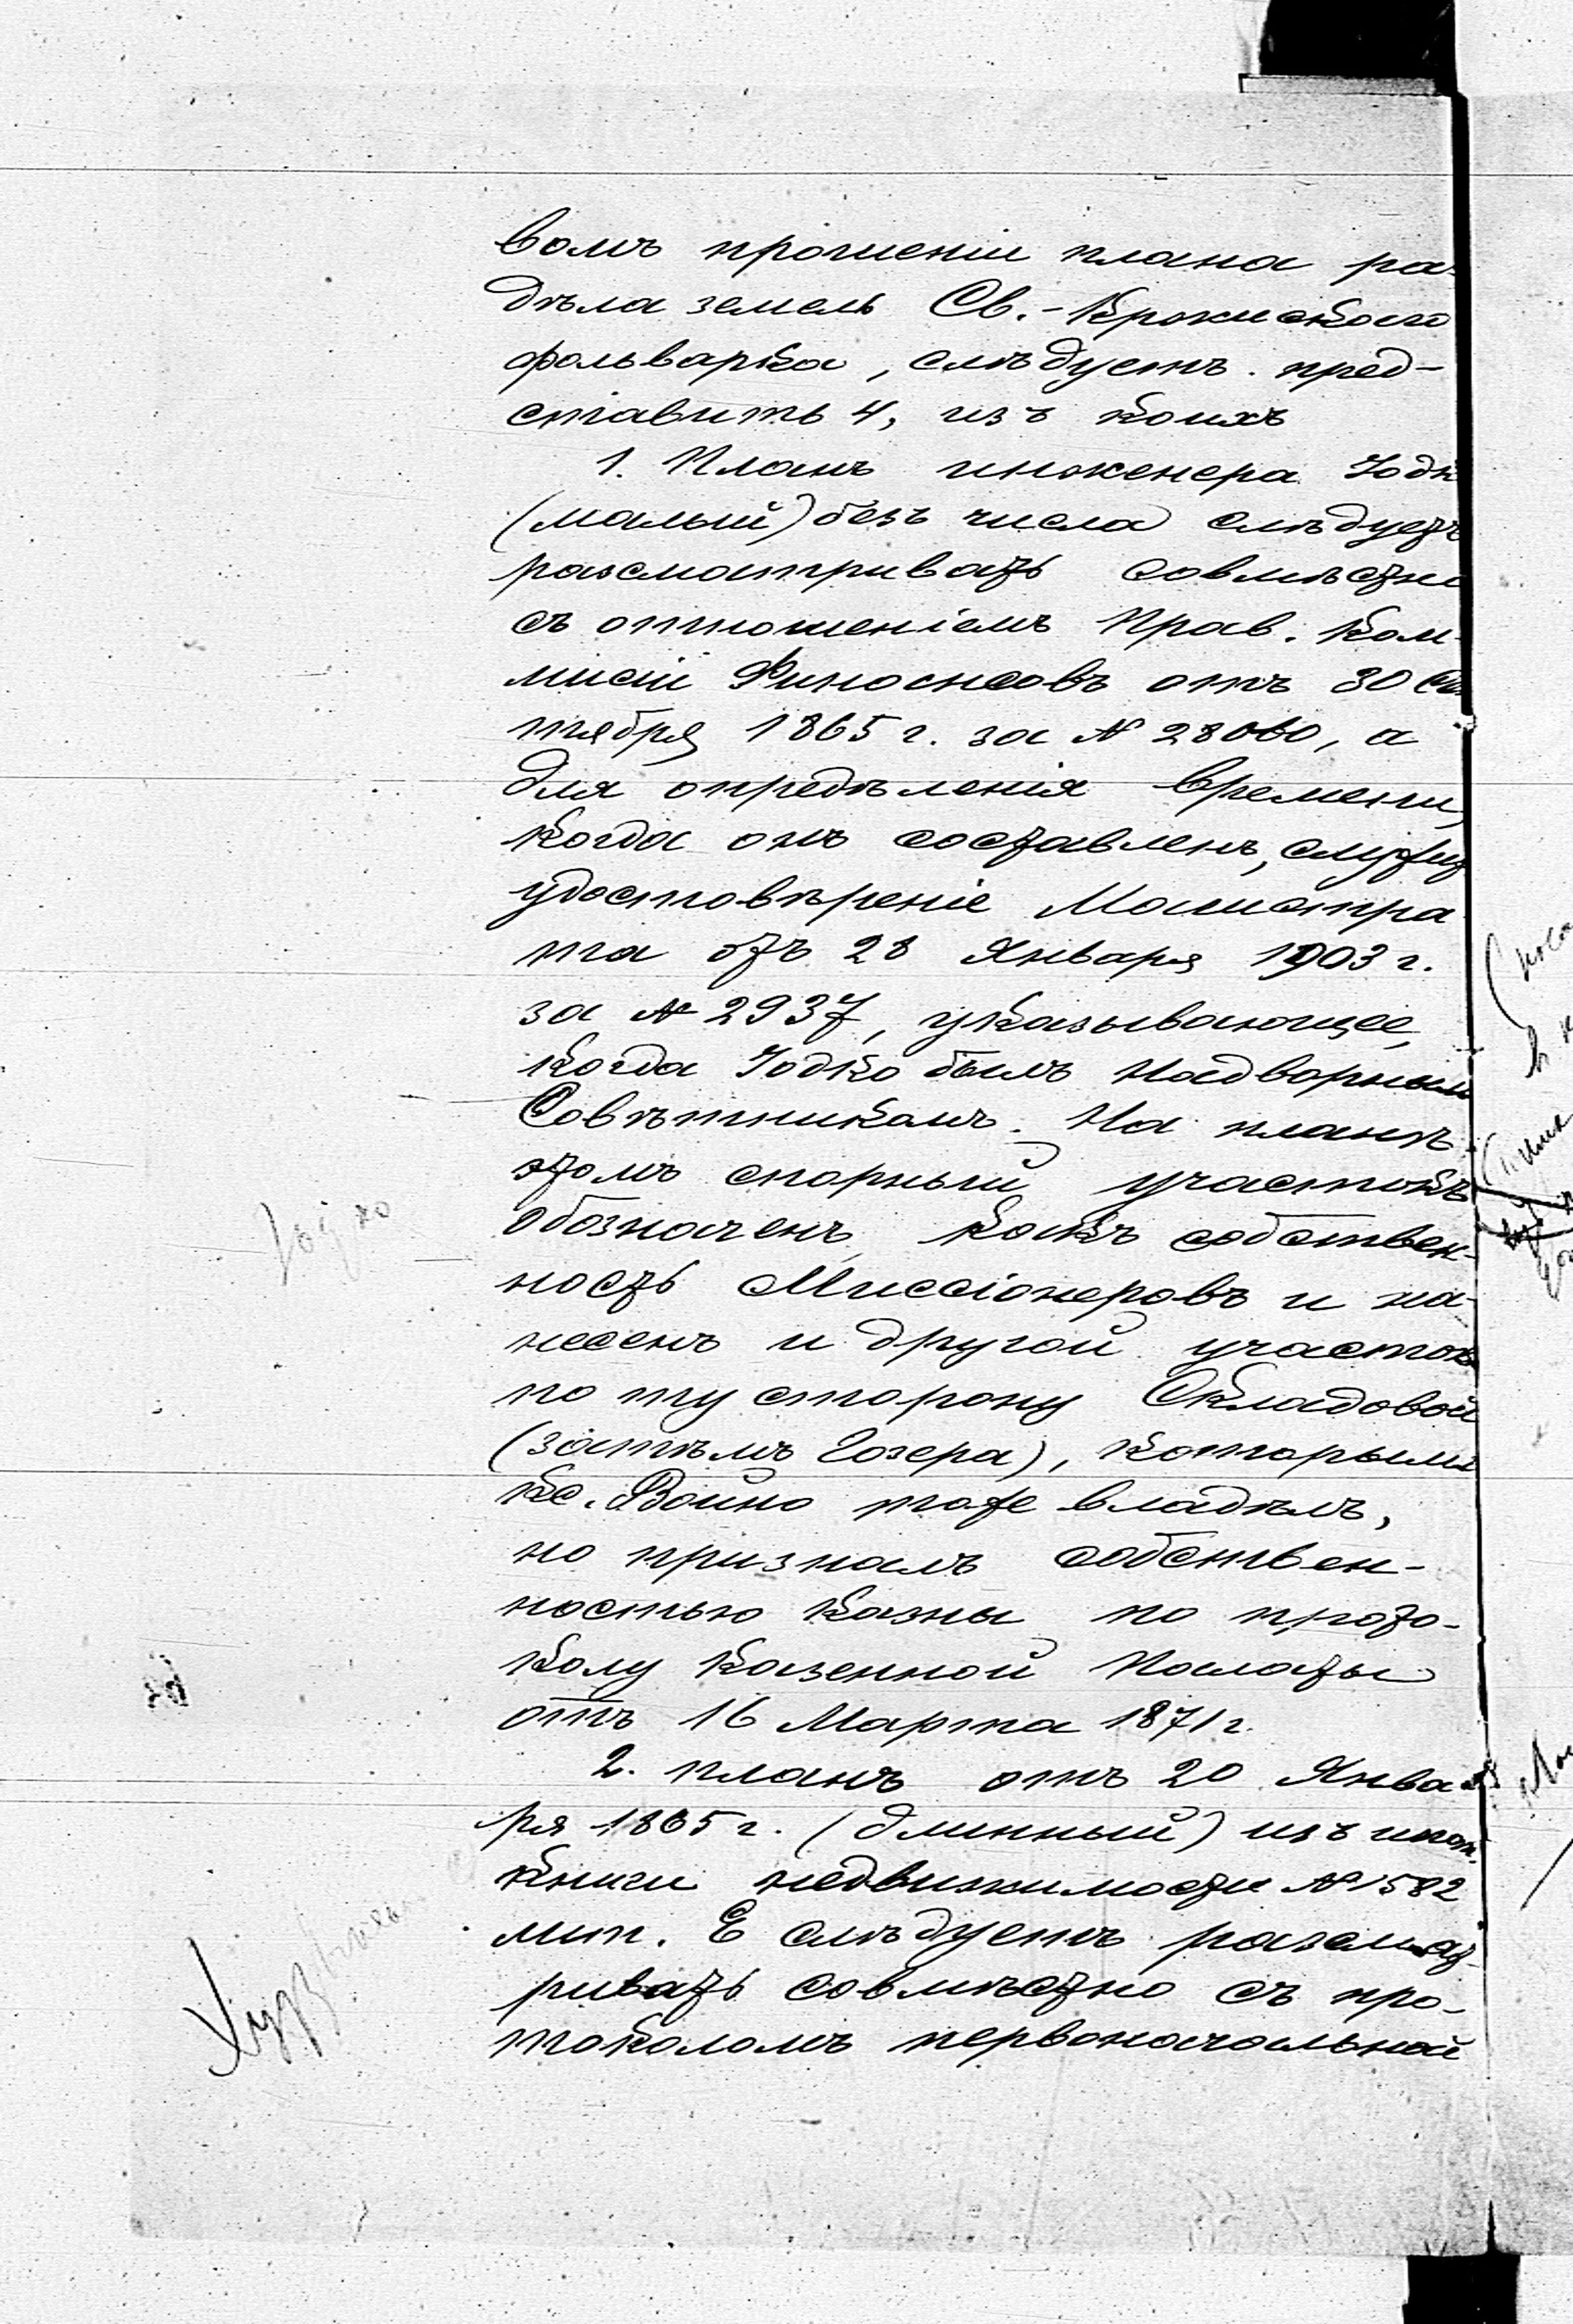 вомъ прошеніи плана ра-
дѣла земель Св.-Крокискаго
фольварка, слѣдуетъ пред-
ставить 4, изъ коихъ
1. Планъ инженера Іодк
(малый) безъ числа слѣдуетъ
разсматривать совмѣстно
съ отношеніемъ Прав. Ком-
мисіи Финансовъ отъ 30 Сен
тября 1865 г. за № 28060, а
для опредѣленія времени,
когда онъ составленъ, служитъ
удостовѣреніе Магистра
та отъ 28 Января 1903 г.
за № 2937, указывающее,
когда Іодко былъ Надворнымъ
Совѣтникомъ. На планѣ
этомъ спорный участокъ
обозначенъ какъ собствен-
ность Миссіонеровъ и на-
несенъ и другой участокъ
по ту сторону Окладовой
(затѣмъ Гозера), которымъ
Кс. Войно тоже владѣлъ,
но призналъ собствен-
ностью казны по прото-
колу Казенной Палаты
отъ 16 Марта 1871 г.
2. планъ отъ 20 Янва
ря 1865 г. (длинный) изъ ипот.
книги недвижимости № 1582
лит. Е слѣдуетъ разсмат-
ривать совмѣстно съ про-
токоломъ первоначальной